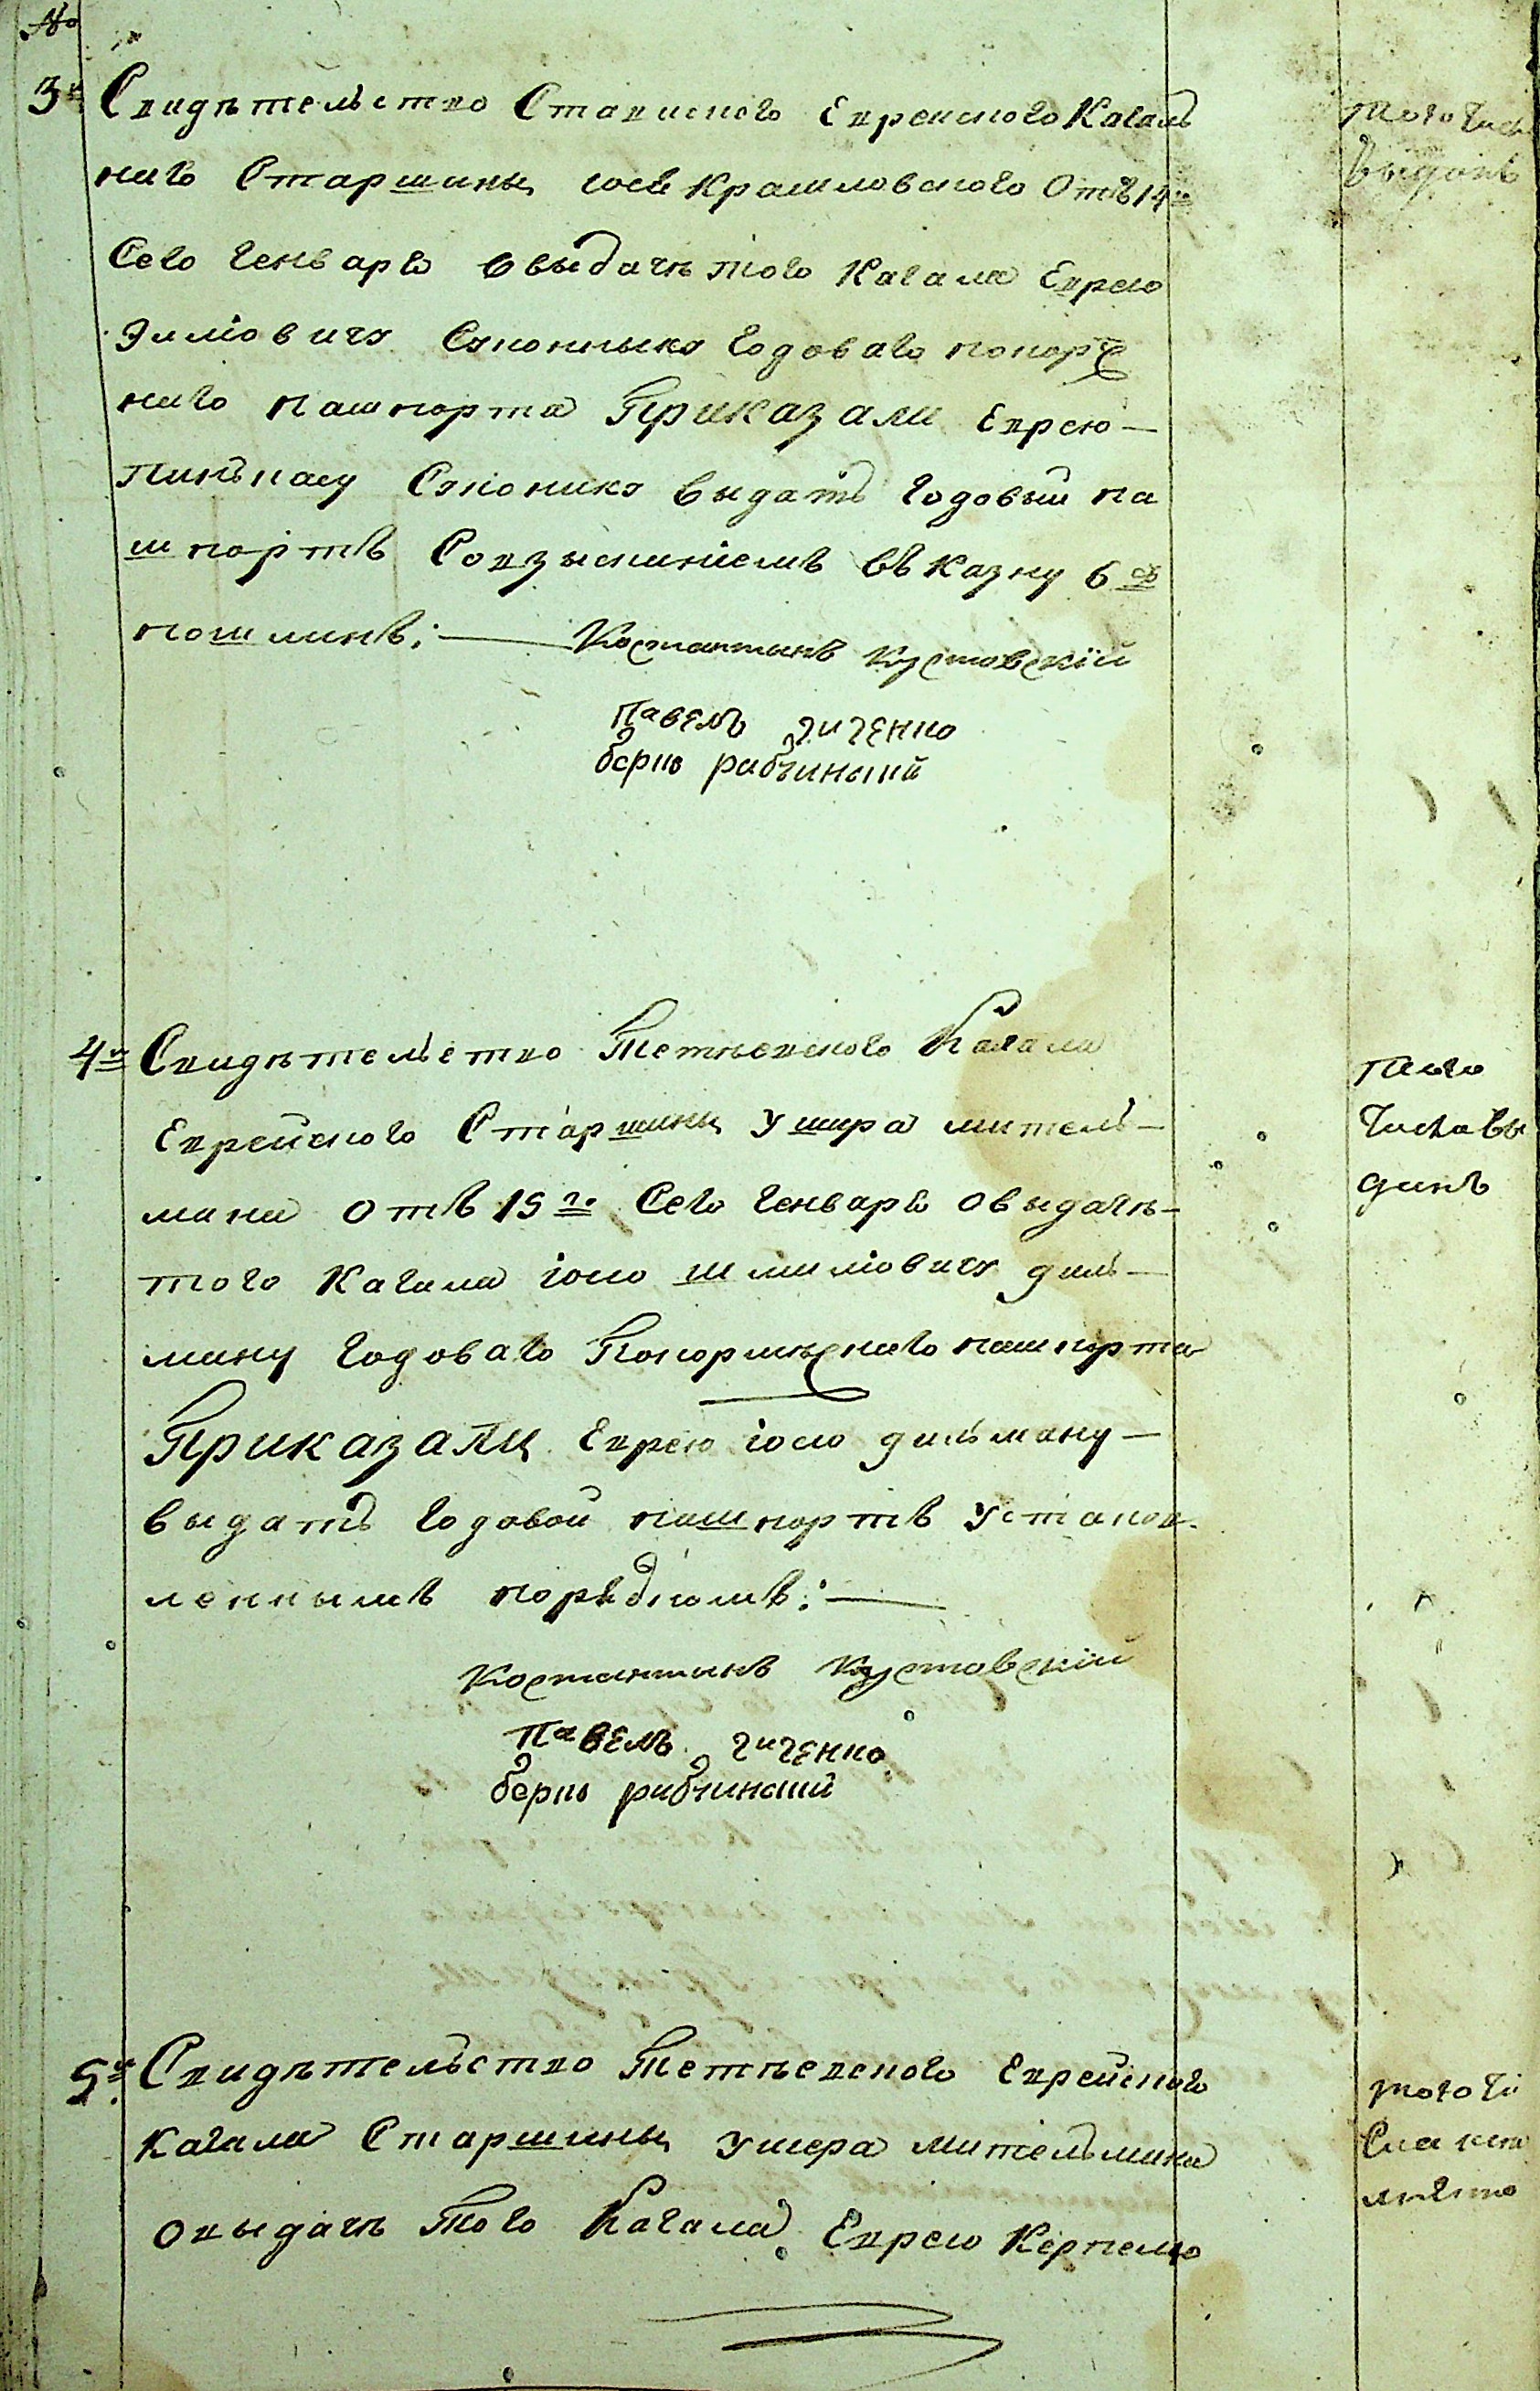 №
3й Свидѣтельство Ставиского Еврейского Кагаль
наго Старшины Крамповского отъ 14го
Сего Генваря о выдачѣ того Кагала Еврею
годоваго покорм
наго пашпорта Приказали Еврею —
Пинькасу выдать годовый па
шпортъ Совзысканіемъ въ Казну 6 ср
пошлинъ: — Костантинъ Кустовскій
Павелъ Чиченко
берко рабчинский
того числа
выданъ
4й Свидѣтельство Тетѣевского Кагала
Еврейского Старшины Ушера Митель —
мана отъ 15го Сего Генваря о выдачѣ —
того Кагала Іосю Шмулiовичу диль —
ману годоваго Покормежнаго пашпорта
Приказали Еврею Іосю дильману —
выдать годовой пашпортъ Установ
леннымъ порядкомъ: —
Костантинъ Кустовскій
Павелъ Чиченко
берко рабчинский
того
Числа вы
данъ
5й Свидѣтельство Тетѣевского Еврейского
Кагала Старшины Ушера Мительмана
о выдачѣ Того Кагала Еврею Керпелю
того Чи
Сла